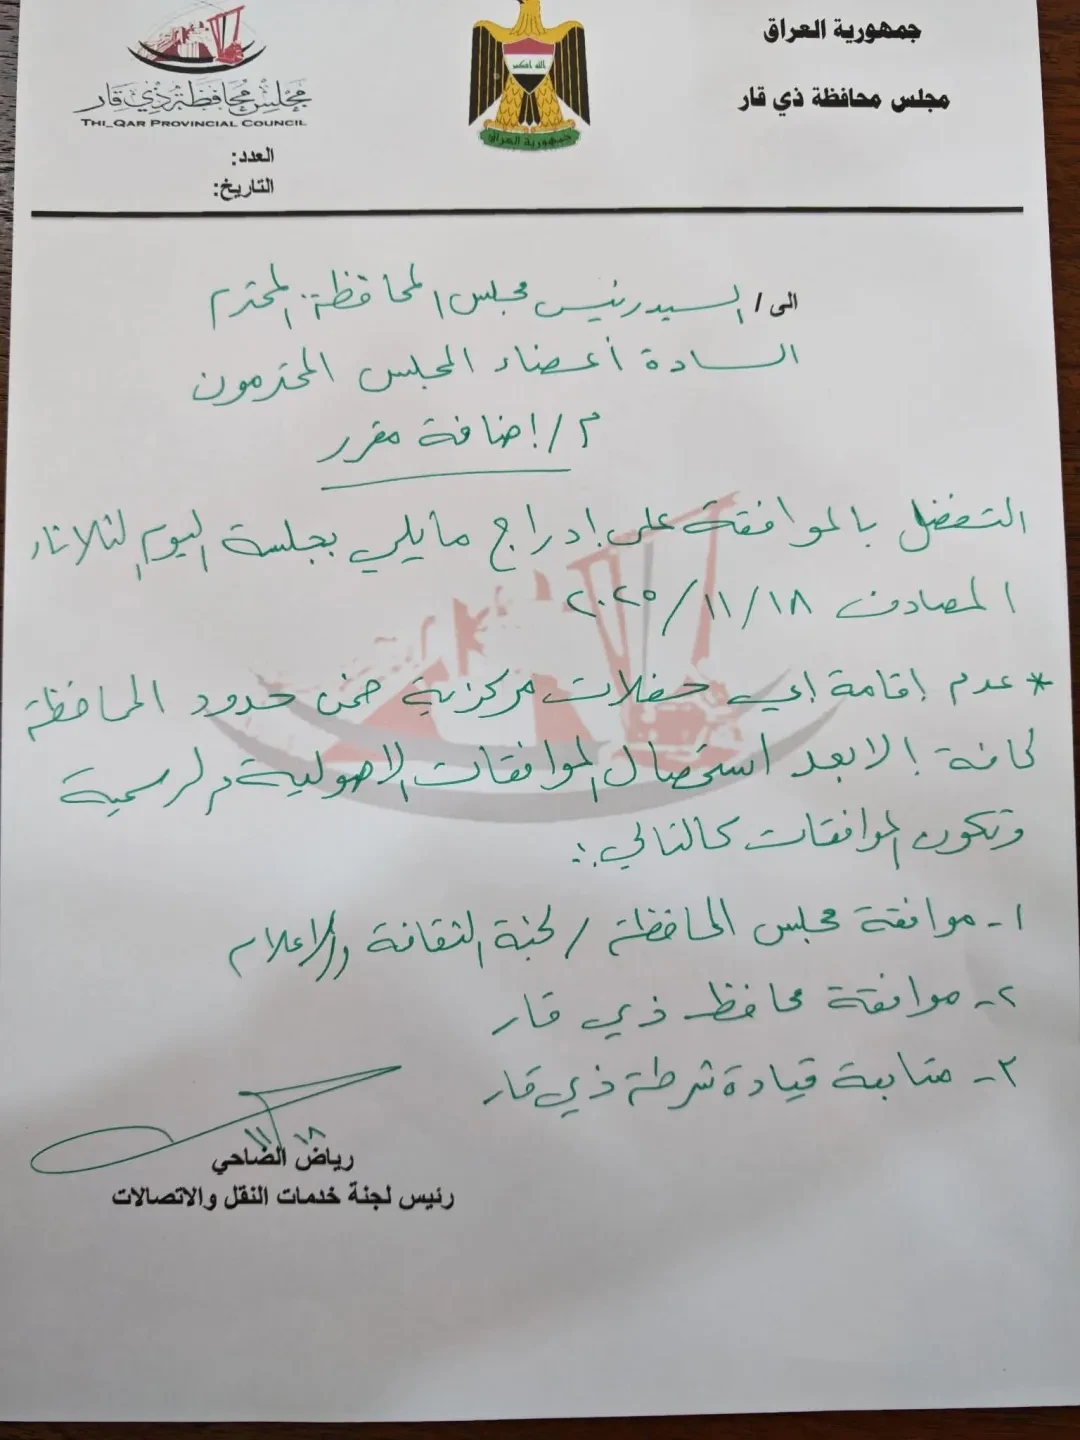 جمهورية العراق
مجلس محافظة ذي قار
الله اكبر
جمهورية العراق
مجلس محافظة ذي قار
THI_QAR PROVINCIAL COUNCIL
العدد:
التاريخ:
الى / السيد رئيس مجلس المحافظة المحترم
السادة أعضاء المجلس المحترمون
م / إضافة مقرر
التفضل بالموافقة على إدراج مايلي بجلسة اليوم الثلاثاء
المصادف ١٨ / ١١ / ٢٠٢٥
* عدم إقامة إي حفلات مركزية ضمن حدود المحافظة
كافة إلا بعد استحصال الموافقات الاصولية والرسمية
وتكون الموافقات كالتالي :.
١- موافقة مجلس المحافظة / لجنة الثقافة والاعلام
٢- موافقة محافظ ذي قار
٣- متابعة قيادة شرطة ذي قار
١١/١٨
رياض الضاحي
رئيس لجنة خدمات النقل والاتصالات